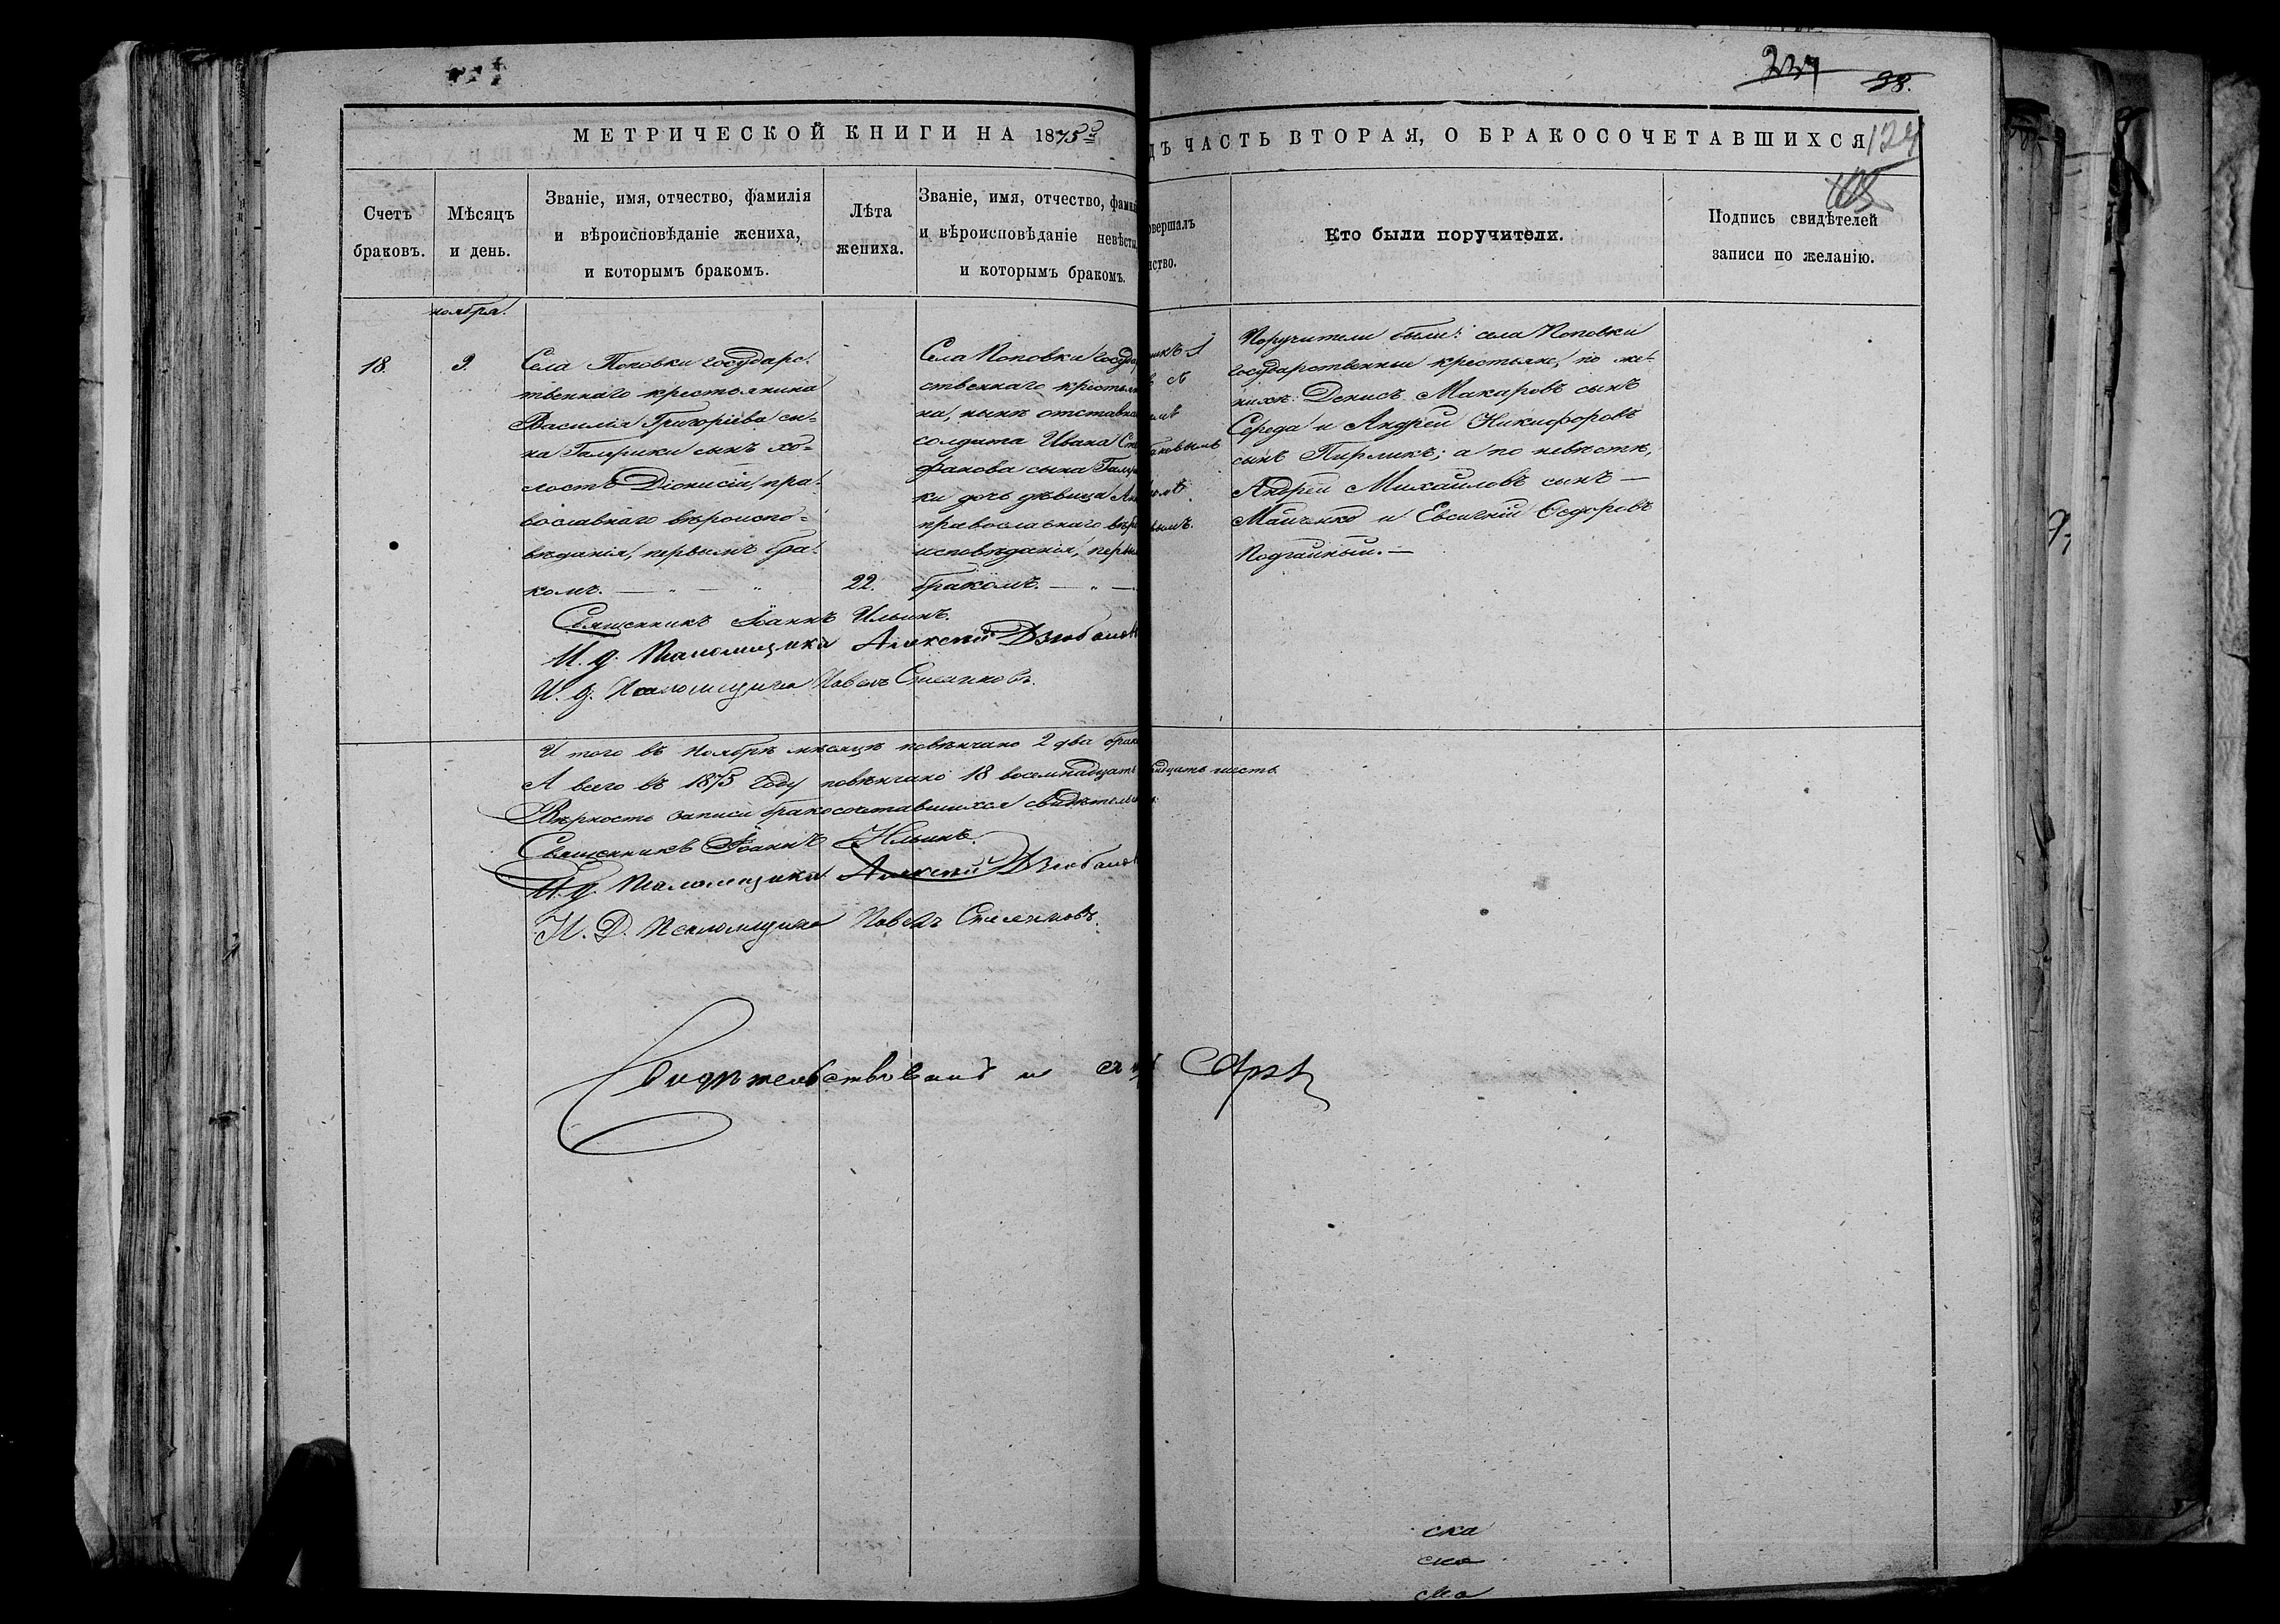 237
38.
МЕТРИЧЕСКОЙ КНИГИ НА 1875
ДЪ ЧАСТЬ ВТОРАЯ, О БРАКОСОЧЕТАВШИХСЯ
124
Счетъ браковъ.
Мѣсяцъ и день.
Званіе, имя, отчество, фамилія
и вѣроисповѣданіе жениха,
и которымъ бракомъ.
Лѣта жениха.
Званіе, имя, отчество, фамилі
и вѣроисповѣданіе невѣсты
и которымъ бракомъ.
овершалъ
нство.
Кто были поручители.
Подпись свидѣтелей
записи по желанію.
ноября.
18.
9.
Села Поповки государс-
твеннаго крестьянина
Василія Григоріева сы-
на сынъ хо-
лостъ Діонисій, пра-
вославнаго вѣроиспо-
вѣданія, первымъ бра-
комъ.
22.
Села Поповки госуда
ственнаго крестьян
на, нынѣ отставна
солдата Ивана Сте
фанова сына
ки дочь дѣвица
православнаго вѣро
исповѣданія, первы
бракомъ.
Поручители были: села Поповки
государственные крестьяне, по же-
нихѣ: Денисъ Макаровъ сынъ
Середа и Андрей Никифоровъ
сынъ Пирликъ; а по невѣстѣ,
Андрей Михаиловъ сынъ —
и Евсигній Ѳедоровъ
Подгайный. —
Священникъ Іоаннъ Ильинъ.
И. д. Псаломщика Алексѣй Дзюбано
И. д. Псаломщика Павелъ
И того въ Ноябрѣ мѣсяцѣ повѣнчано 2 два брак
А всего въ 1875 году повѣнчано 18 восемнадцать шесть.
Вѣрность записи бракосочетавшихся свидѣтельс
Священникъ Іоаннъ Ильинъ.
И. д. Псаломщика Алексѣй Дзюбано
И. Д. Псаломщика Павелъ
Свидѣтельствовалъ и
ска
ска